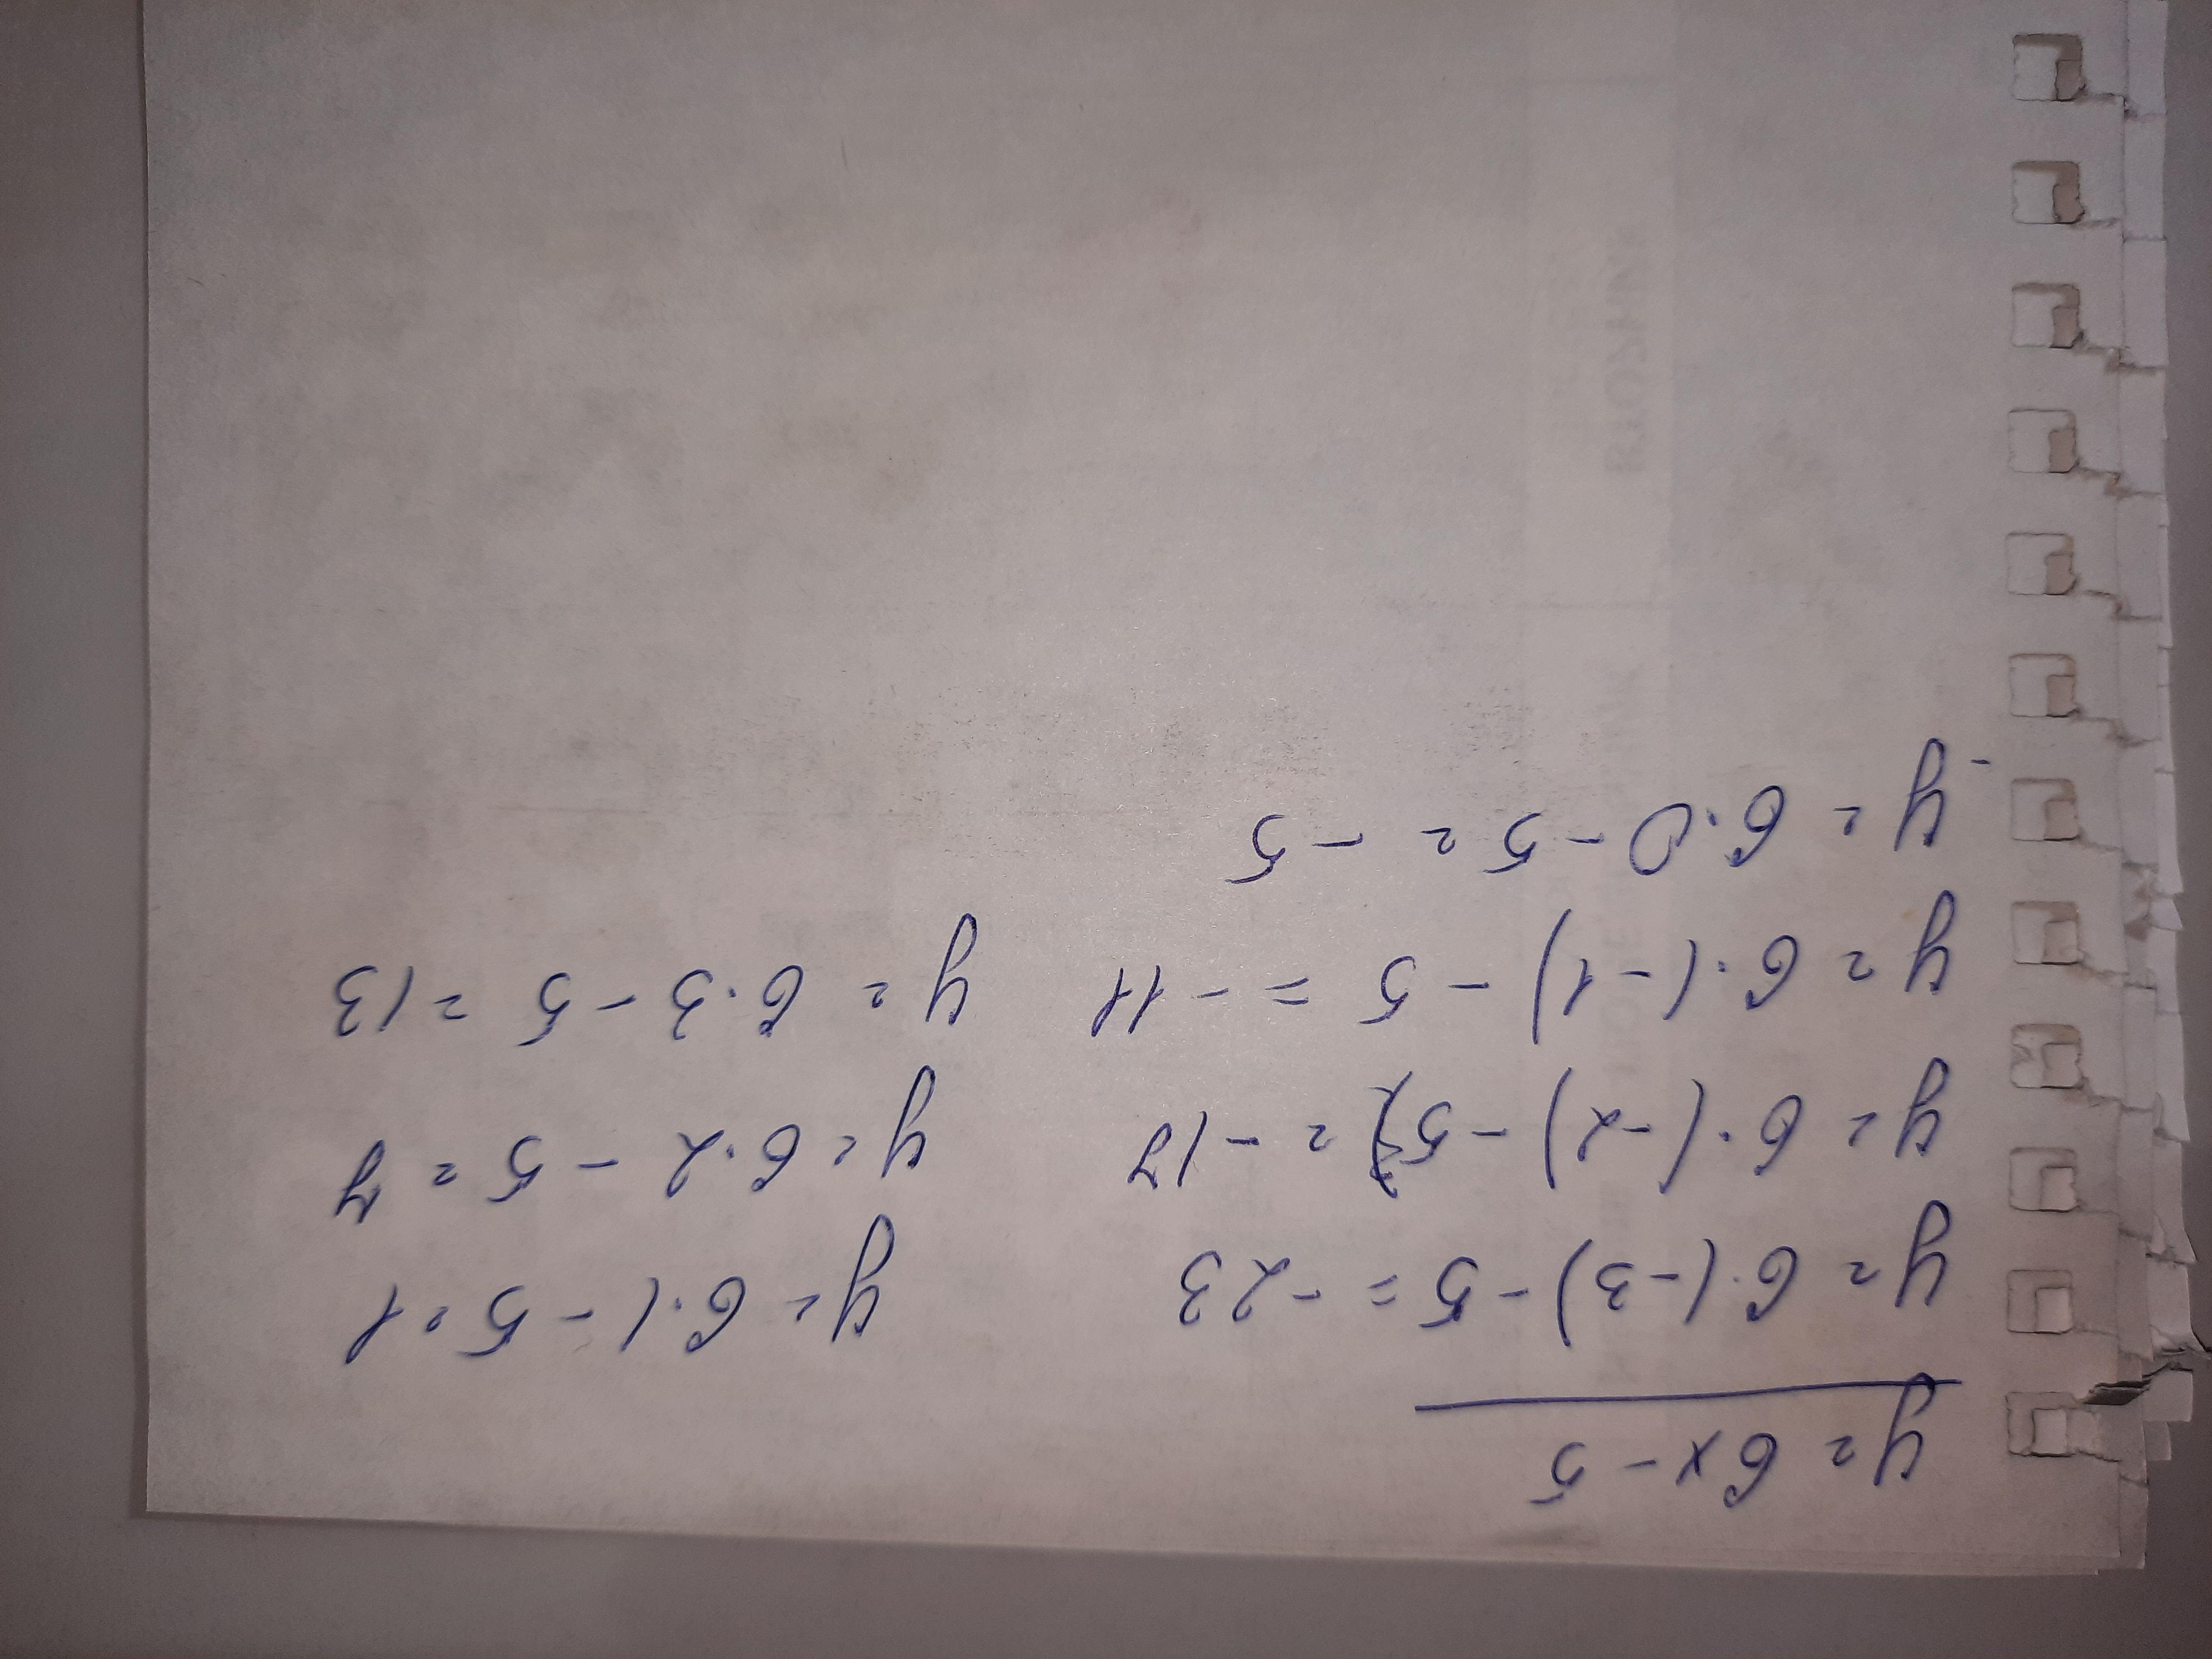 y = 6x - 5
y = 6·(-3) - 5 = -23
y = 6·(-2) - 5 = -17
y = 6·(-1) - 5 = -11
y = 6·0 - 5 = -5
y = 6·1 - 5 = 1
y = 6·2 - 5 = 7
y = 6·3 - 5 = 13
ВТОРНИК